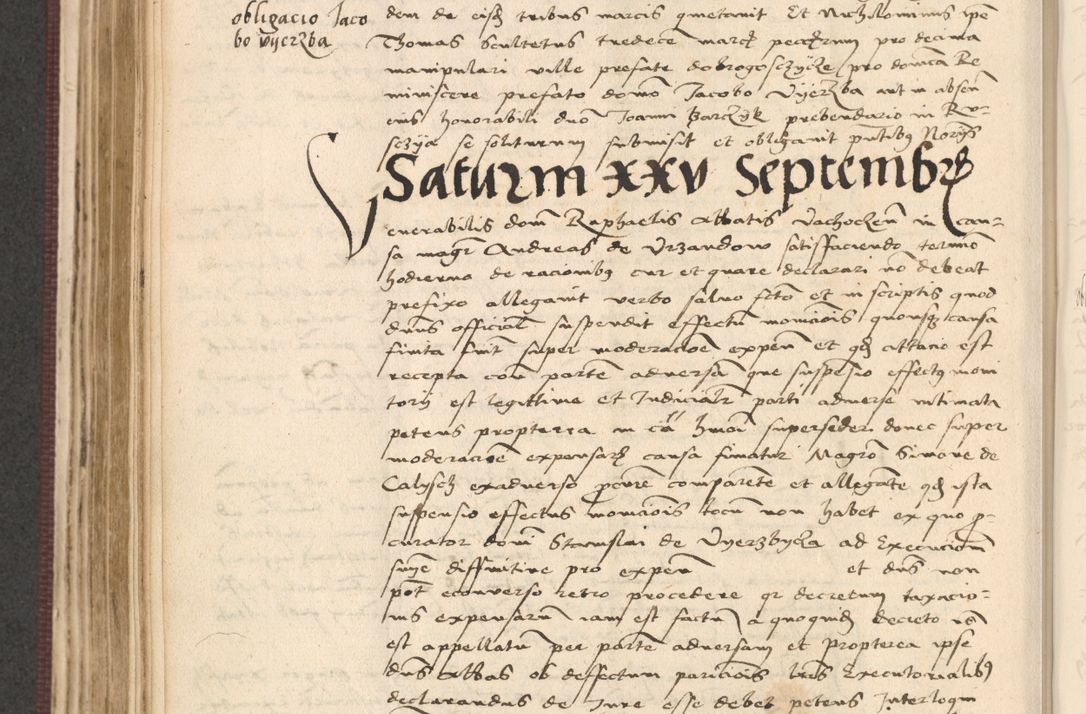 obligacio Jaco
bo vyerzba
dem de eisd tribus marcis quietavit Et Nicholominus ipe
Thomas Scultetus tredece marcs pro decima
manipulari ville prefate dobrogosczycze pro domca Re
miniscere prefato domo Jacobo Vyerzba aut in absen
eius honorabili duo Joanni Barczyk prebendario in Ru-
sczya se soluturum submisit et obligavit putibq Norys
Saturni xxv Septembrs
Venerabilis dom Raphaelis Abbatis Vachocken in cau-
sa magr Andreas de Urzandow satisfaciendo termio
hodierna de racionibq cur et quare declarari no debeat
prefixo allegavit verbo salvo scto et in scriptis quod
dnus official suspendit effectu moniciois quousq causa
finita fuit super moderacioe expen et qd attacio est
recepta con parte adversa que suspensio effectq moni
torii est legittime et Judicialr parti adverse intimata
petens propterea in ca hmoi superseder donec super
moderacioe expensarz causa finiatur Magro Simone de
Calysch exadverso pcure comparete et allegate qd ista
suspensio effectus moniciois locu non habet ex quo p-
curator domi Stanislai de Vyerzbycza ad Execucione
sinie diffinitive pro expen et dns non
pot econverso retro procedere qr decretum taxacio-
nis expensarum iam est factu a quoquid decreto no
est appellatu per parte adversam et propterea ipse
dns Abbas ob deffectum paricois lras Executorialibq
declarandus de Jure esse debet petens Interloqui